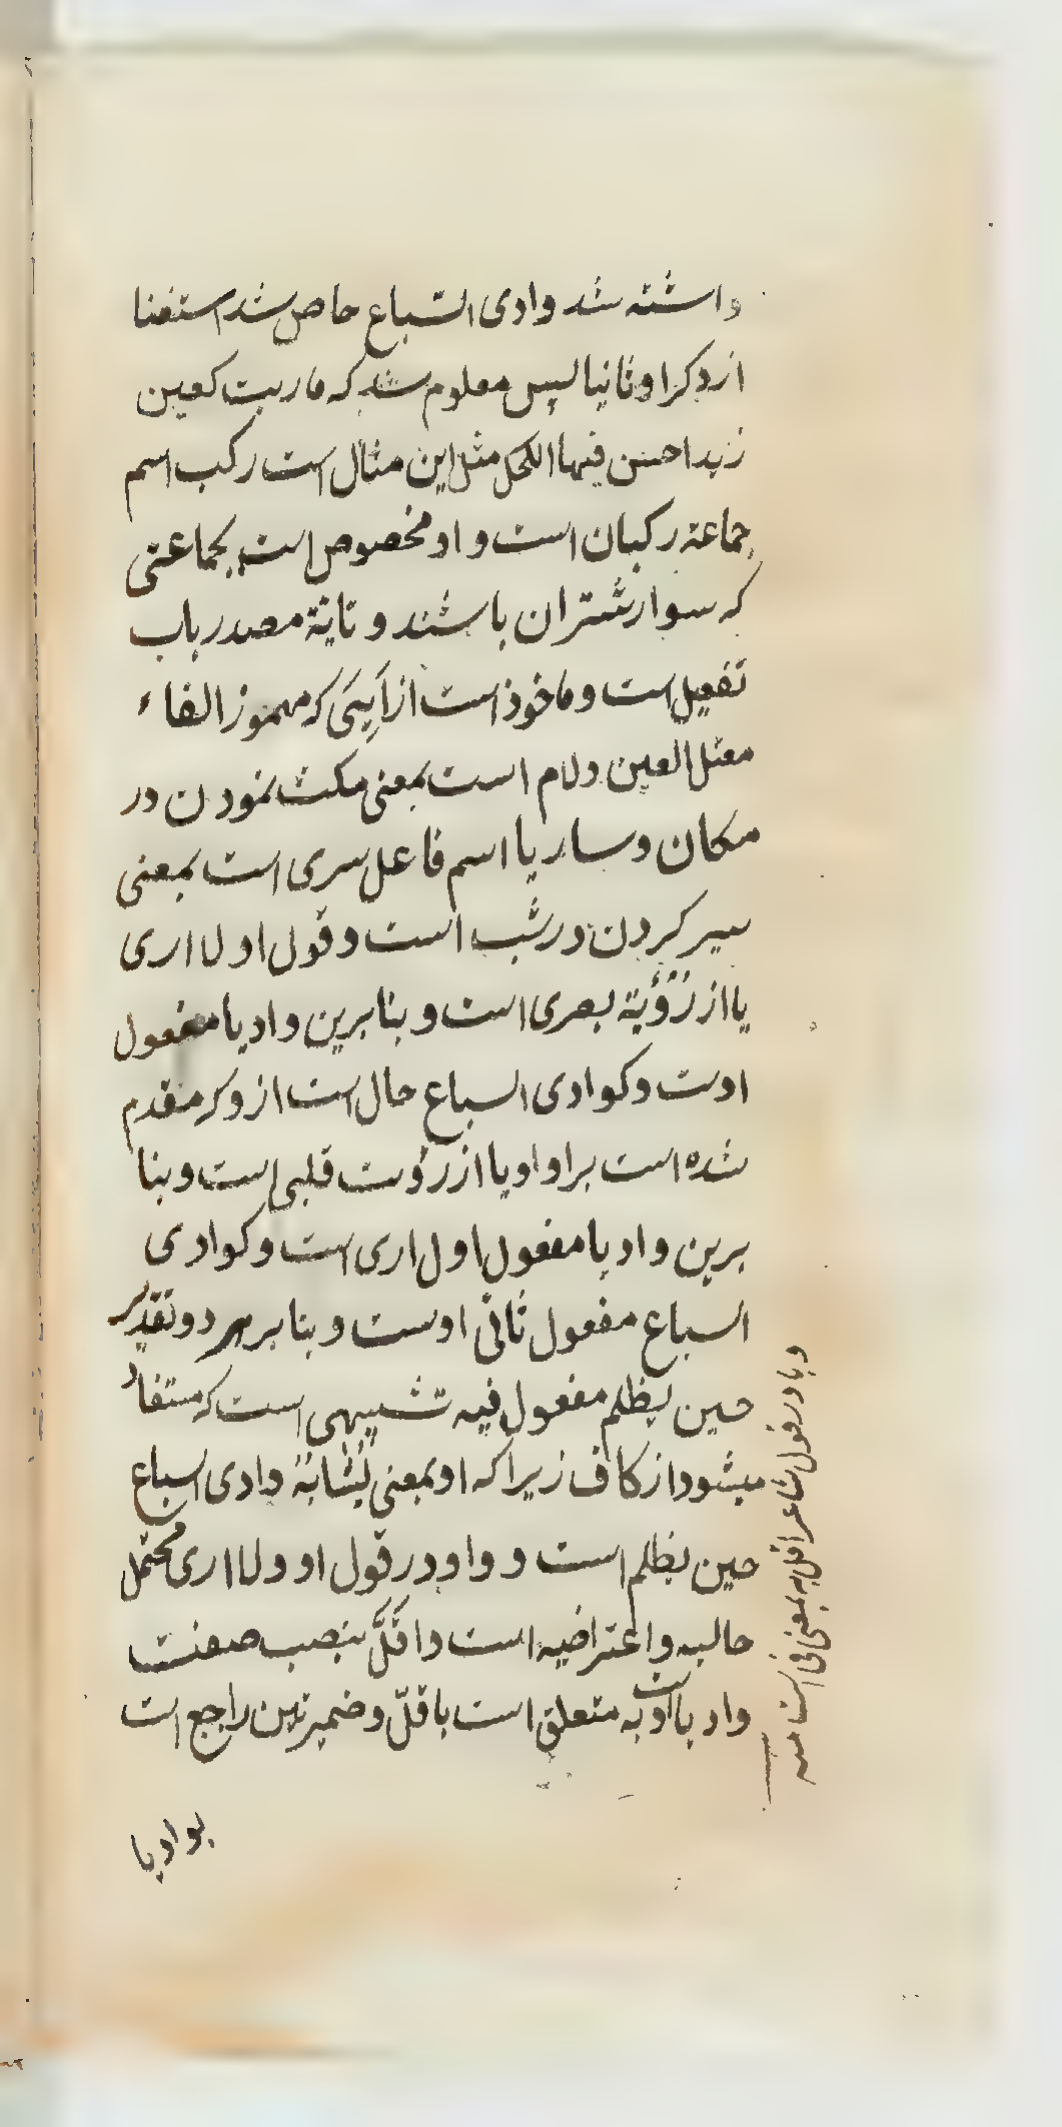 داشته شد وادی السباع حاص شد استغنا
از ذکر او ثانیا پس معلوم شد که ما رایت کعین
زید احسن فیها الکحل مثل این مثال است رکب اسم
جماعة رکبان است و او مخصوص است بجماعتی
که سوار شتران باشند و تایّة مصدر باب
تفعیل است و ماخوذ است از اَیِیَ که مهموز الفاء
معتل العین ولام است بمعنی مکث نمودن در
مکان و ساریا اسم فاعل سری است بمعنی
سیر کردن در شب است و قول او لا اری
یا از رُؤْیَة بصری است و بنا برین وادیا مفعول
اوست و کوادی السباع حال است از و که مقدم
شده است برا و او یا از رؤیت قلبی است و بنا
برین وادیا مفعول اول اری است و کوادی
السباع مفعول ثانی اوست و بنا بر هر دو تقدیر
حین یظلم مفعول فیه تشبیهی است که مستفاد
میشود از کاف زیرا که او بمعنی یُشابهُ وادی السباع
حین یظلم است و واو در قول او ولا اری محتمل
حالیه و اعتراضیه است و اقَلَّ بنصب صفت
وادیا است و به متعلق است باقلّ و ضمیر به بین راجع است
بوادیا
و با در قول شاعر اقل به بمعنی فی است منه